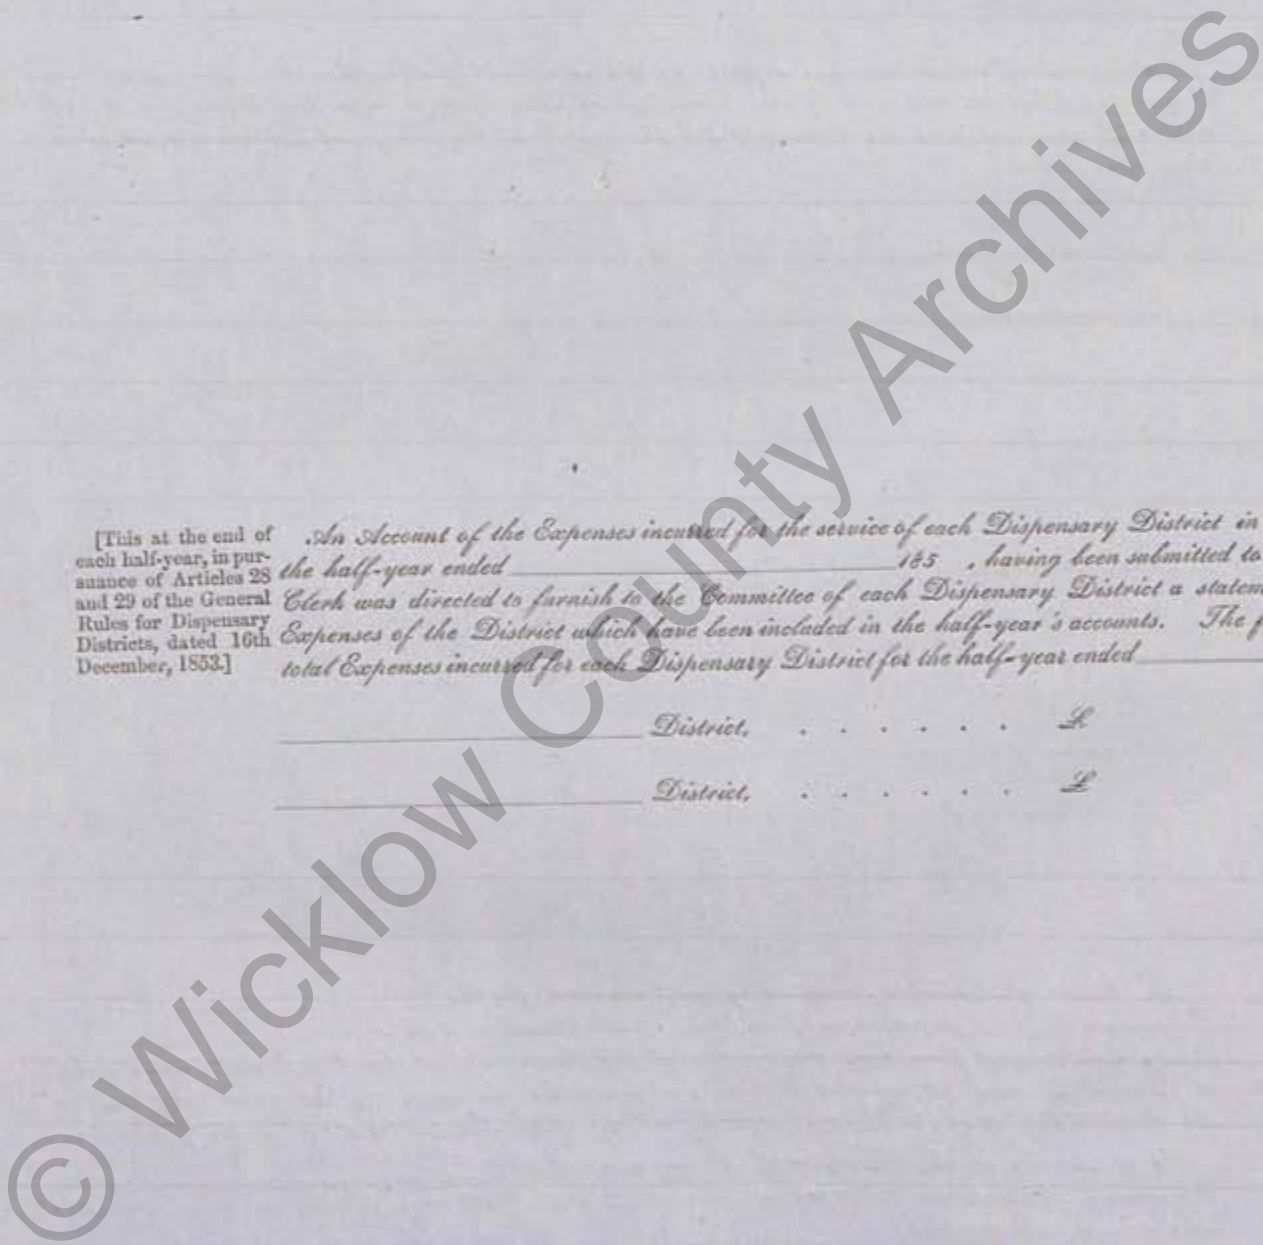 [This at the end of
each half-year, in pur-
suance of Articles 28
and 29 of the General
Rules for Dispensary
Districts, dated 16th
December, 1853.]
An Account of the Expenses incurred for the service of each Dispensary District in
the half-year ended 185 , having been submitted to
Clerk was directed to furnish to the Committee of each Dispensary District a statem
Expenses of the District which have been included in the half-year's accounts. The f
total Expenses incurred for each Dispensary District for the half-year ended
District, . . . . . . £
District, . . . . . . £
© Wicklow County Archives